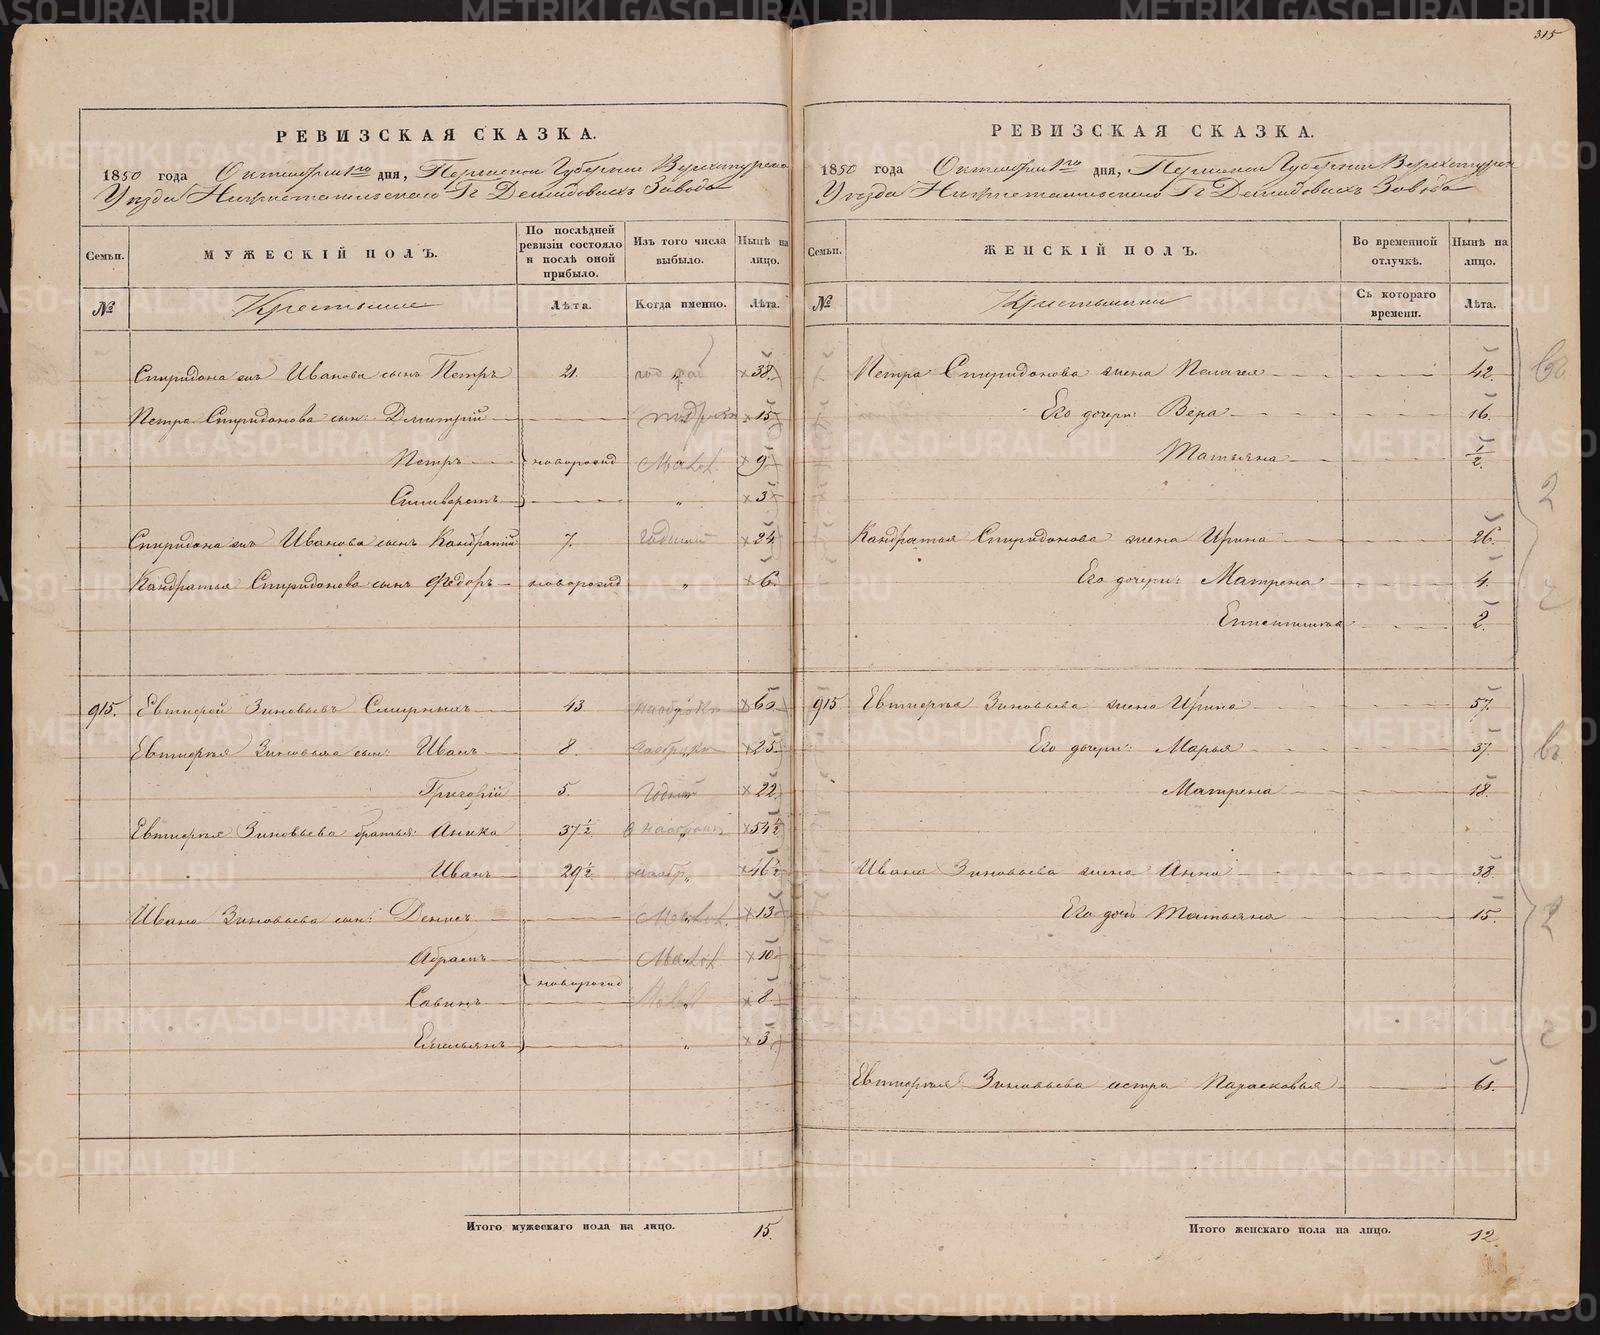 315
РЕВИЗСКАЯ СКАЗКА.
1850 года Октября 1го дня, Пермской Губернии Верхотурска
Уезда Нижнетагильскаго Гг Демидовыхъ Завода
Семьи. МУЖЕСКІЙ ПОЛЪ. По послѣдней ревизіи состояло и послѣ оной прибыло. Изъ того числа выбыло. Нынѣ на лицо.
№ Крестьяне Лѣта. Когда именно. Лѣта.
Спиридона Иванова сынъ Петръ 21. 38.
Петра Спиридонова сын: Дмитрій 15
Петръ новорожд 9
Силиверстъ 3
Спиридона Иванова сынъ Кандратій 7. годный 24
Кандратья Спиридонова сынъ Федоръ новорожд 6.
915. Евтифей Зиновьевъ Смирныхъ 43 60
Евтифея Зиновьева сын: Иванъ 8. 25
Григорій 5. Годный 22
Евтифея Зиновьева братья: Аника 37½ 54½
Иванъ 29½ 46½
Ивана Зиновьева сын: Денисъ 13
Абрамъ 10
новорожд
Савинъ 8
Емельянъ 3
Итого мужескаго пола на лицо. 15.
РЕВИЗСКАЯ СКАЗКА.
1850 года Октября 1го дня, Пермской Губерніи Верхотурск
Уезда Нижнетагильскаго Гг Демидовыхъ Завода
Семьи. ЖЕНСКІЙ ПОЛЪ. Во временной отлучкѣ. Нынѣ на лицо.
№ Крестьянки Съ котораго времени. Лѣта.
Петра Спиридонова жена Пелагея 42.
Его дочери: Вера 16.
Татьяна ½.
Кандратья Спиридонова жена Ирина 26.
Его дочери: Матрена 4.
2.
915 Евтифея Зиновьева жена Ирина 57.
Его дочери: Марья 37
Матрена 18.
Ивана Зиновьева жена Анна 38.
Его дочь Татьяна 15.
Евтифея Зиновьева сестра Парасковья 61.
Итого женскаго пола на лицо. 12.
METRIKI.GASO-URAL.RU